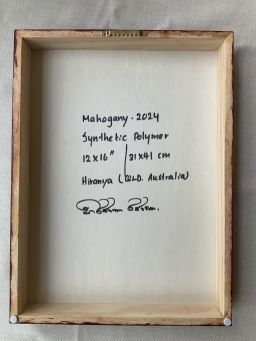 Mahogany . 2024
Synthetic Polymer
12 x 16" / 31 x 41 cm
Hiranya (QLD. Australia)